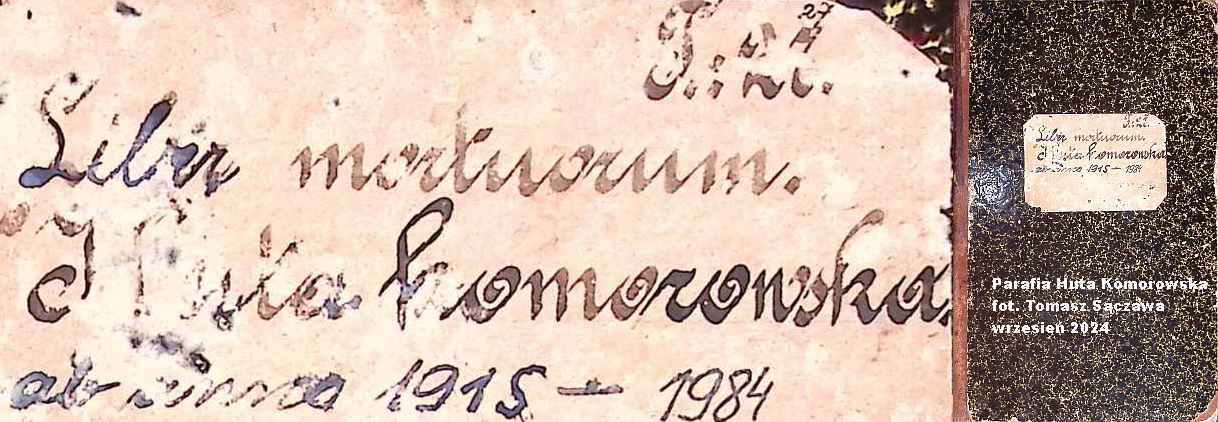 27
T. II.
Liber mortuorum.
Huta Komorowska.
ab anno 1915 – 1984
Liber mortuorum.
Huta Komorowska
ab anno 1915 – 1984
Parafia Huta Komorowska
fot. Tomasz Sączawa
wrzesień 2024